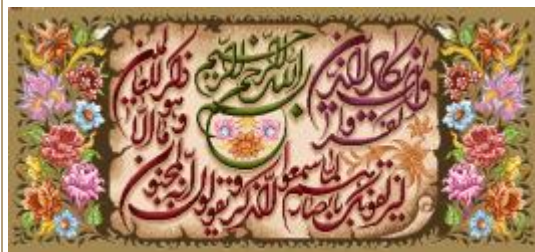 بسم الله الرحمن الرحیم
وان یکاد الذین
کفروا
لیزلقونک بابصارهم لما سمعوا الذکر و یقولون انه لمجنون
وما هو الا
ذکر للعالمین